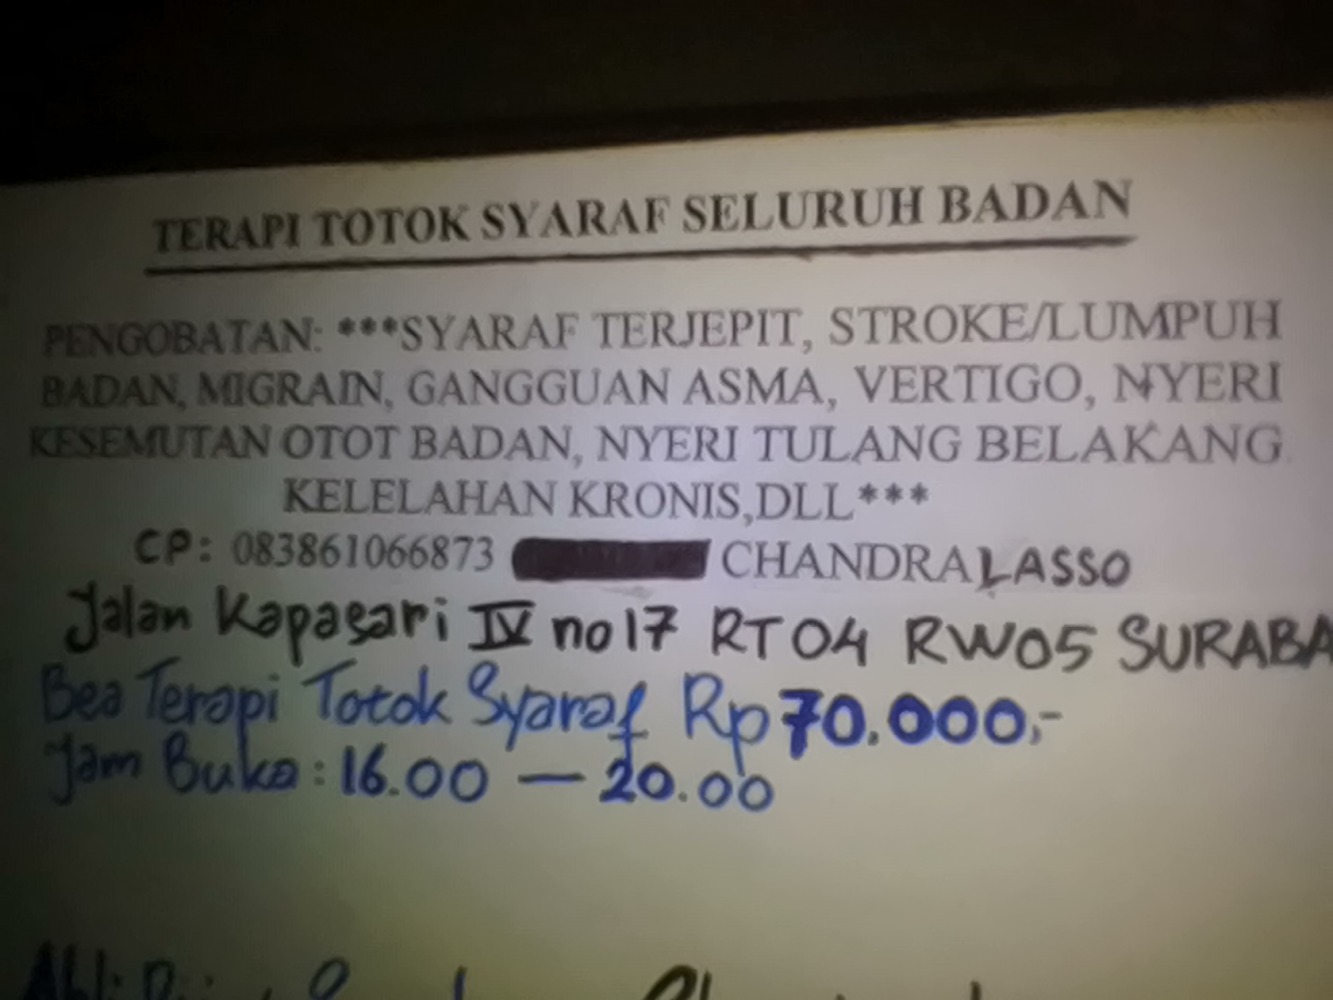 TERAPI TOTOK SYARAF SELURUH BADAN
PENGOBATAN: ***SYARAF TERJEPIT, STROKE/LUMPUH
BADAN, MIGRAIN, GANGGUAN ASMA, VERTIGO, NYERI
KESEMUTAN OTOT BADAN, NYERI TULANG BELAKANG
KELELAHAN KRONIS,DLL***
CP: 083861066873 CHANDRA LASSO
Jalan Kapasari IV no 17 RT 04 RW05 SURABA
Bea Terapi Totok Syaraf Rp 70.000,-
Jam Buka: 16.00 — 20.00